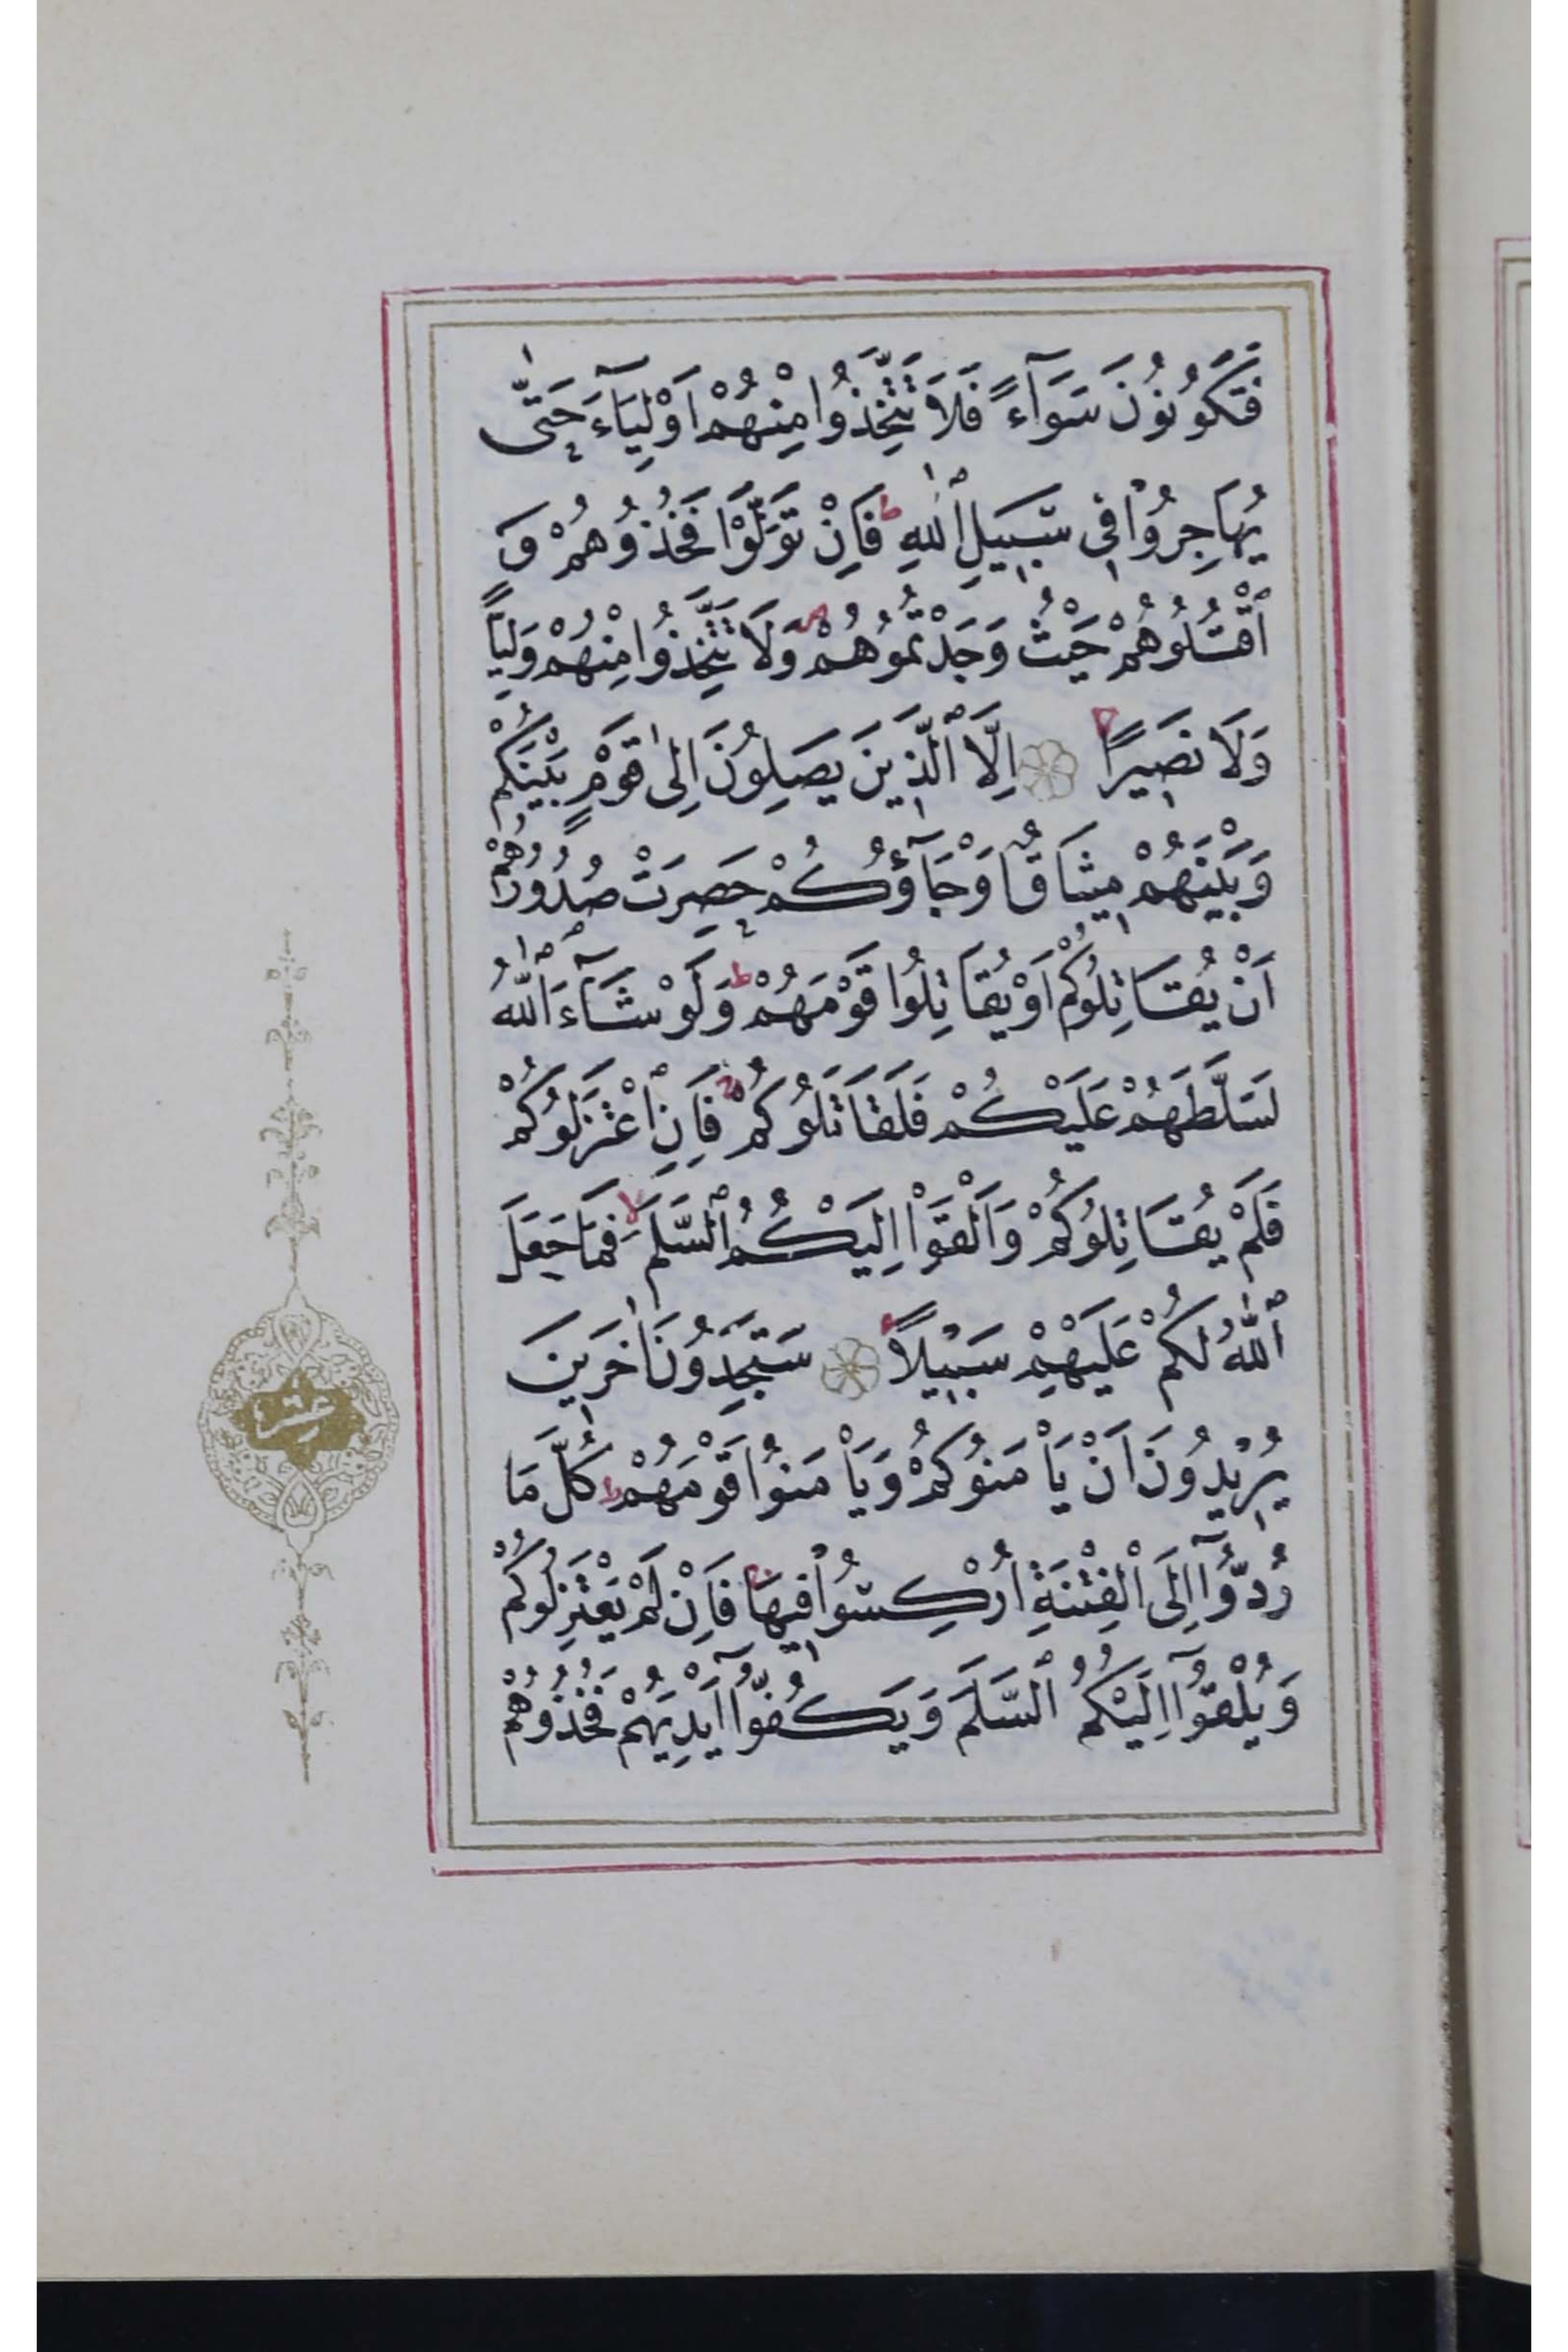 فَتَكُونُونَ سَوَآءً فَلَا تَتَّخِذُوا مِنْهُمْ اَوْلِيَآءَ حَتّٰى
يُهَاجِرُوْا فِي سَبِيلِ ٱللّٰهِ ط فَاِنْ تَوَلَّوْا فَخُذُوهُمْ وَ
ٱقْتُلُوهُمْ حَيْثُ وَجَدْتُمُوهُمْ وَلَا تَتَّخِذُوا مِنْهُمْ وَلِيًّا
وَلَا نَصِيرًا اِلَّا ٱلَّذِينَ يَصِلُونَ اِلٰى قَوْمٍ بَيْنَكُمْ
وَبَيْنَهُمْ مِيثَاقٌ اَوْجَآؤُكُمْ حَصِرَتْ صُدُورُهُمْ
اَنْ يُقَاتِلُوكُمْ اَوْ يُقَاتِلُوا قَوْمَهُمْ ط وَلَوْ شَآءَ ٱللّٰهُ
لَسَلَّطَهُمْ عَلَيْكُمْ فَلَقَاتَلُوكُمْ فَاِنِ ٱعْتَزَلُوكُمْ
فَلَمْ يُقَاتِلُوكُمْ وَاَلْقَوْا اِلَيْكُمُ ٱلسَّلَمَ لا فَمَا جَعَلَ
ٱللّٰهُ لَكُمْ عَلَيْهِمْ سَبِيلًا سَتَجِدُونَ اٰخَرِينَ
يُرِيْدُونَ اَنْ يَأْمَنُوكُمْ وَيَأْمَنُوا قَوْمَهُمْ ط كُلَّ مَا
رُدُّوٓا اِلَى الْفِتْنَةِ اُرْكِسُوْا فِيهَا فَاِنْ لَمْ يَعْتَزِلُوكُمْ
وَيُلْقُوٓا اِلَيْكُمُ ٱلسَّلَمَ وَيَكُفُّوٓا اَيْدِيَهُمْ فَخُذُوهُمْ
عشر